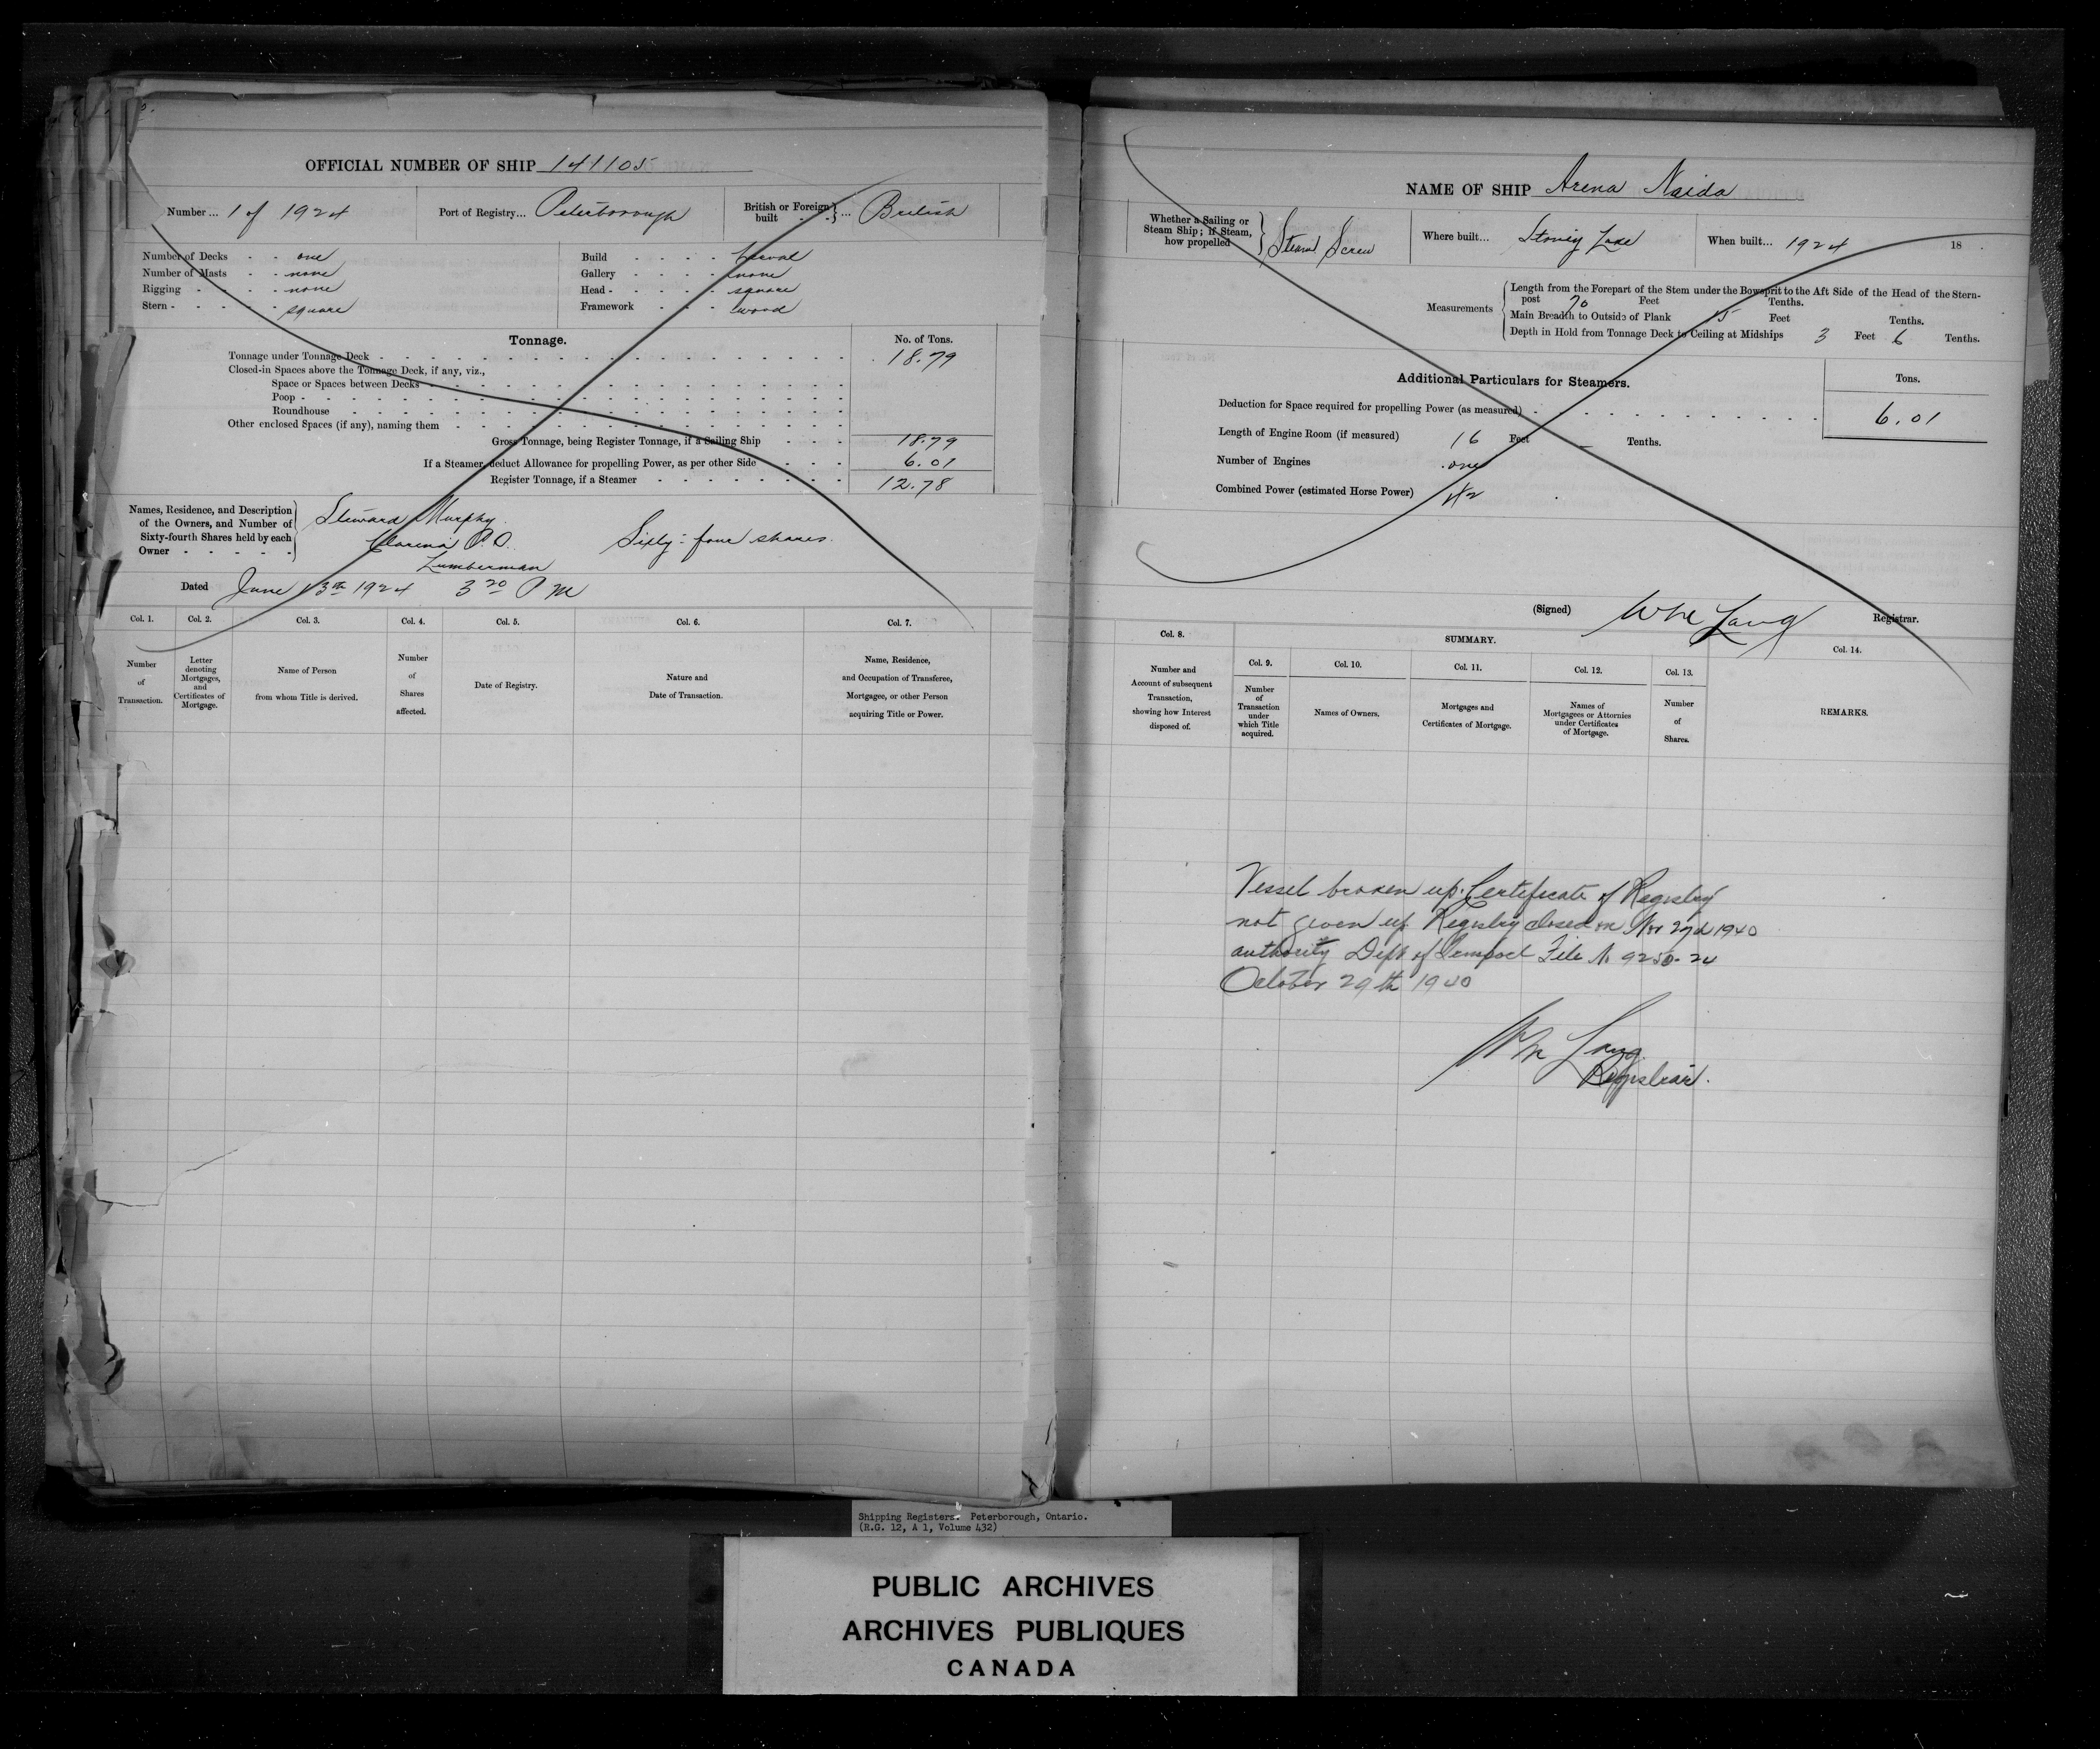 OFFICIAL NUMBER OF SHIP 141105
Number... 1 of 1924 Port of Registry... Peterborough British or Foreign built } ... British
Number of Decks - - one
Number of Masts - - none
Rigging - - - - none
Stern - - - - - square
Build - - - - Carval
Gallery - - - - none
Head - - - - - square
Framework - - - wood
Tonnage.
No. of Tons.
Tonnage under Tonnage Deck 18.79
Closed-in Spaces above the Tonnage Deck, if any, viz.,
Space or Spaces between Decks
Poop
Roundhouse
Other enclosed Spaces (if any), naming them
Gross Tonnage, being Register Tonnage, if a Sailing Ship 18.79
If a Steamer, deduct Allowance for propelling Power, as per other Side 6.01
Register Tonnage, if a Steamer 12.78
Names, Residence, and Description
of the Owners, and Number of
Sixty-fourth Shares held by each
Owner
Steward Murphy
Clarina P.O. Sixty-four shares.
Lumberman
Dated June 13th 1924 3 20 P M
Col. 1. Col. 2. Col. 3. Col. 4. Col. 5. Col. 6. Col. 7.
Number
of
Transaction.
Letter
denoting
Mortgages,
and
Certificates of
Mortgage.
Name of Person
from whom Title is derived.
Number
of
Shares
affected.
Date of Registry.
Nature and
Date of Transaction.
Name, Residence,
and Occupation of Transferee,
Mortgagee, or other Person
acquiring Title or Power.
NAME OF SHIP Arena Naida
Whether a Sailing or
Steam Ship; if Steam,
how propelled
Steam Screw
Where built... Stoney Lake
When built... 1924 18
Measurements
Length from the Forepart of the Stem under the Bowsprit to the Aft Side of the Head of the Stern-
post 70 Feet Tenths.
Main Breadth to Outside of Plank 15 Feet Tenths.
Depth in Hold from Tonnage Deck to Ceiling at Midships 3 Feet 6 Tenths.
Additional Particulars for Steamers.
Tons.
Deduction for Space required for propelling Power (as measured) 6.01
Length of Engine Room (if measured) 16 Feet — Tenths.
Number of Engines one
Combined Power (estimated Horse Power)
(Signed) Wm Lang Registrar.
Col. 8.
SUMMARY.
Col. 9. Col. 10. Col. 11. Col. 12. Col. 13. Col. 14.
Number and
Account of subsequent
Transaction,
showing how Interest
disposed of.
Number
of
Transaction
under
which Title
acquired.
Names of Owners.
Mortgages and
Certificates of Mortgage.
Names of
Mortgagees or Attornies
under Certificates
of Mortgage.
Number
of
Shares.
REMARKS.
Vessel broken up. Certificate of Registry
not given up. Registry closed on Nov 1940
authority Dept of Transport File No 9250-24
October 29th 1940
Wm Lang
Registrar.
Shipping Registers. Peterborough, Ontario.
(R.G. 12, A 1, Volume 432)
PUBLIC ARCHIVES
ARCHIVES PUBLIQUES
CANADA